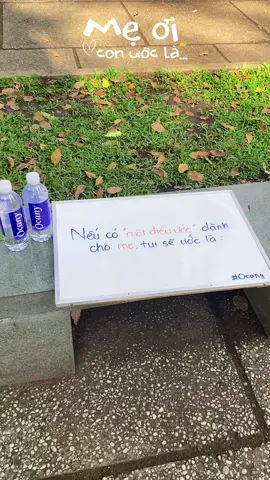 Mẹ ơi
con ước là...
Nếu có "một điều ước" dành
cho mẹ, tui sẽ ước là:
#Ocany
Ocany
Ocany